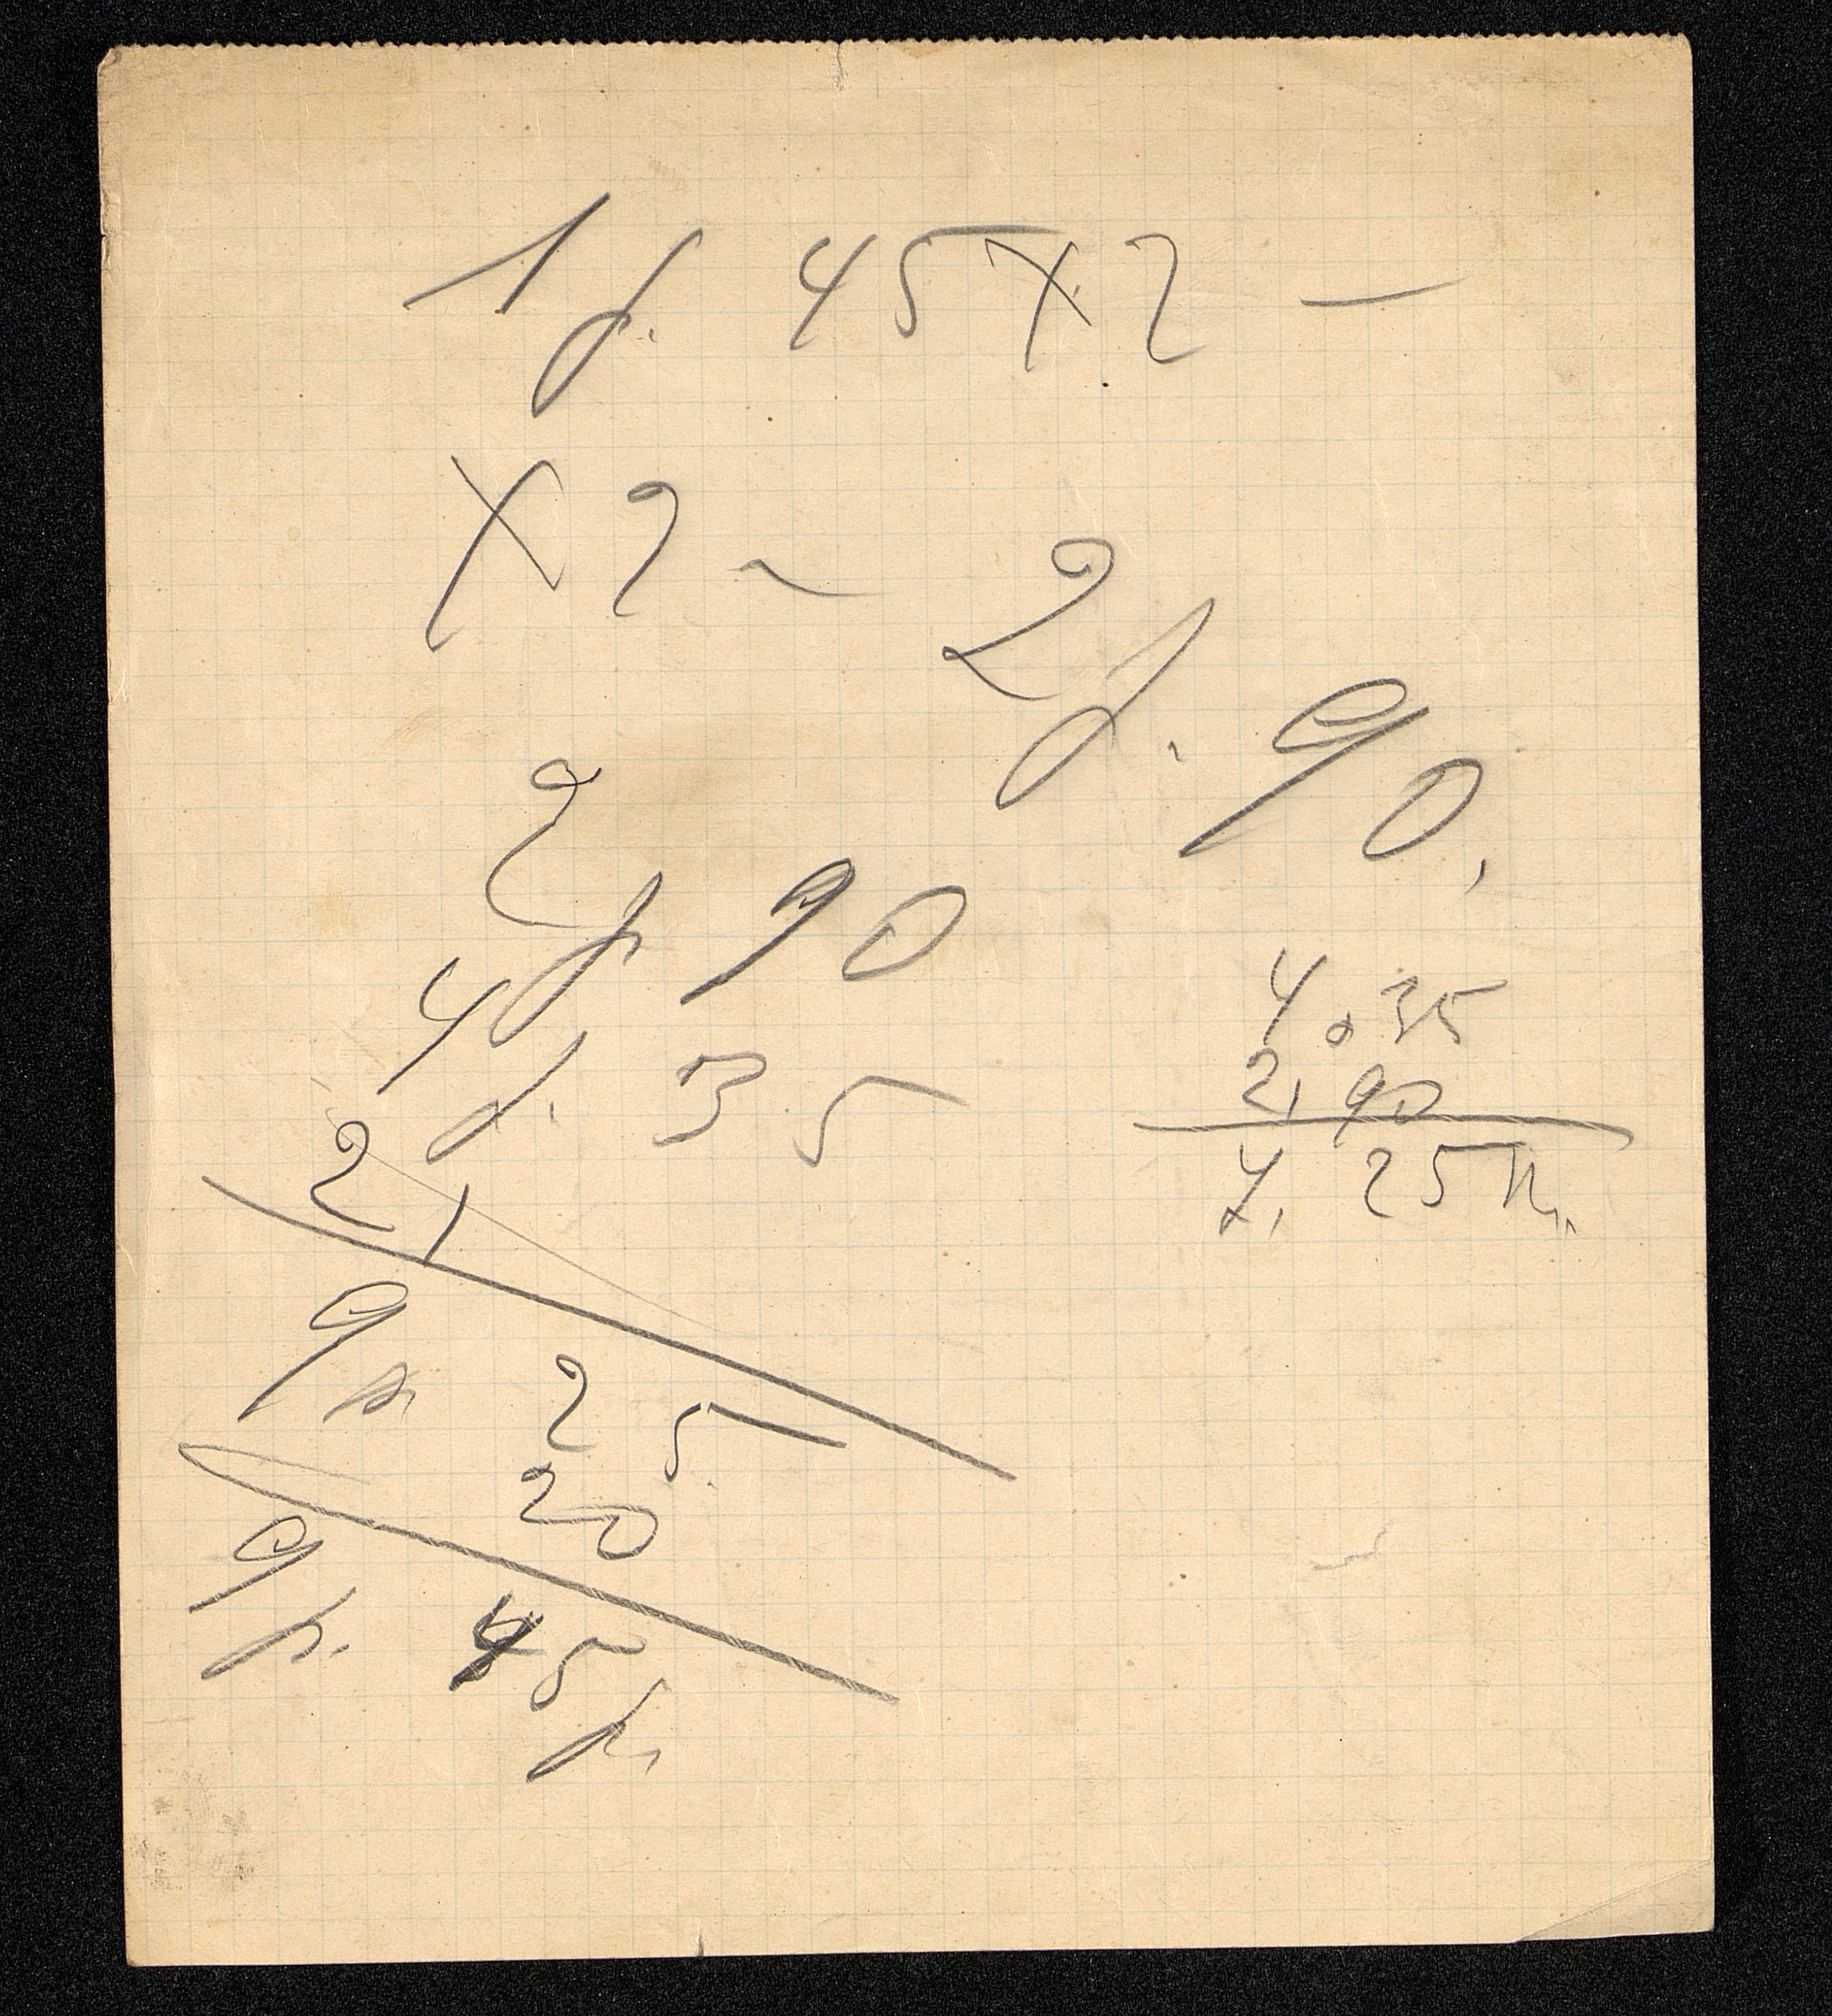 1 р. 45 X 2 —
X 2 ~ 2 р. 90.
2 р. 90
4 р. 35
2,
9 р. 25
20
9 р. 45 к.
4. 35
2, 90
7, 25 к.